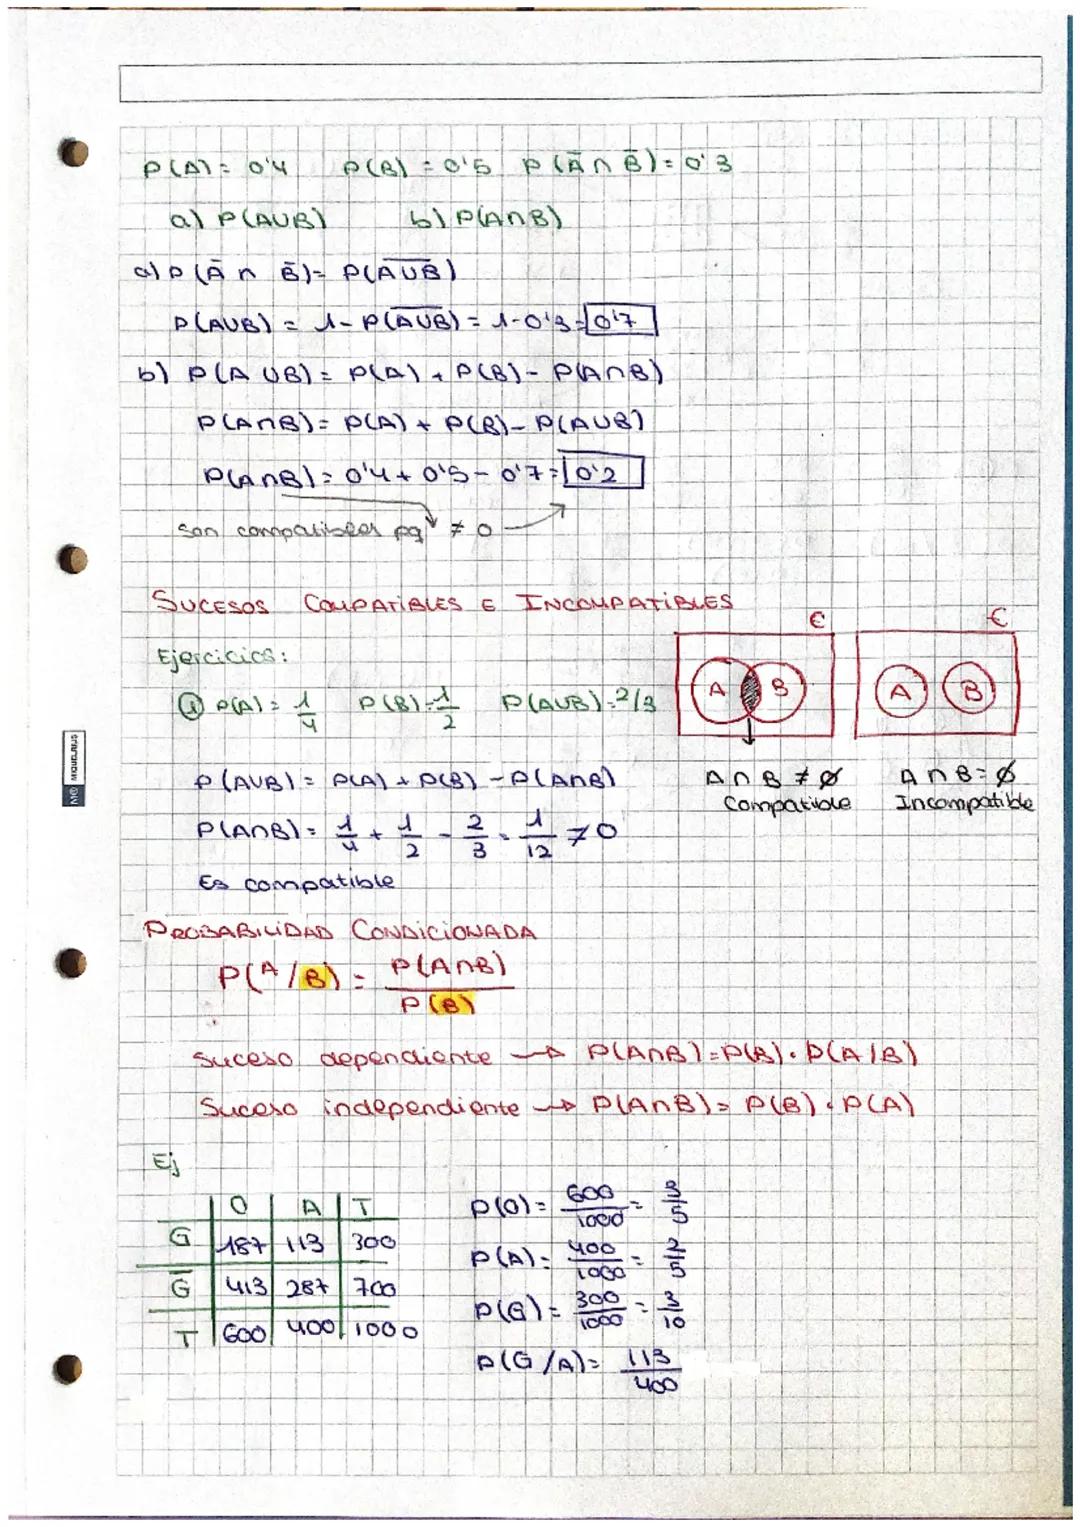 P(A) = 0'4 P(B) = 0'5 P(Ā ∩ B̄) = 0'3
a) P(A∪B) b) P(A∩B)
a) P(Ā ∩ B̄) = P(A̅∪̅B̅)
P(A∪B) = 1 - P(A̅∪̅B̅) = 1 - 0'3 = 0'7
b) P(A ∪ B) = P(A) + P(B) - P(A∩B)
P(A∩B) = P(A) + P(B) - P(A∪B)
P(A∩B) = 0'4 + 0'5 - 0'7 = 0'2
son compatibles pq ≠ 0
SUCESOS COMPATIBLES E INCOMPATIBLES
Ejercicios:
① P(A) = 1/4 P(B) = 1/2 P(A∪B) = 2/3
P(A∪B) = P(A) + P(B) - P(A∩B)
P(A∩B) = 1/4 + 1/2 - 2/3 = 1/12 ≠ 0
Es compatible
E
A B
A ∩ B ≠ Ø
Compatible
E
A B
A ∩ B = Ø
Incompatible
PROBABILIDAD CONDICIONADA
P(A/B) = P(A∩B) / P(B)
Suceso dependiente → P(A∩B) = P(B) · P(A/B)
Suceso independiente → P(A∩B) = P(B) · P(A)
Ej
O A T
G 187 113 300
G̅ 413 287 700
T 600 400 1000
P(O) = 600/1000 = 3/5
P(A) = 400/1000 = 2/5
P(G) = 300/1000 = 3/10
P(G/A) = 113/400
MIQUELRIUS